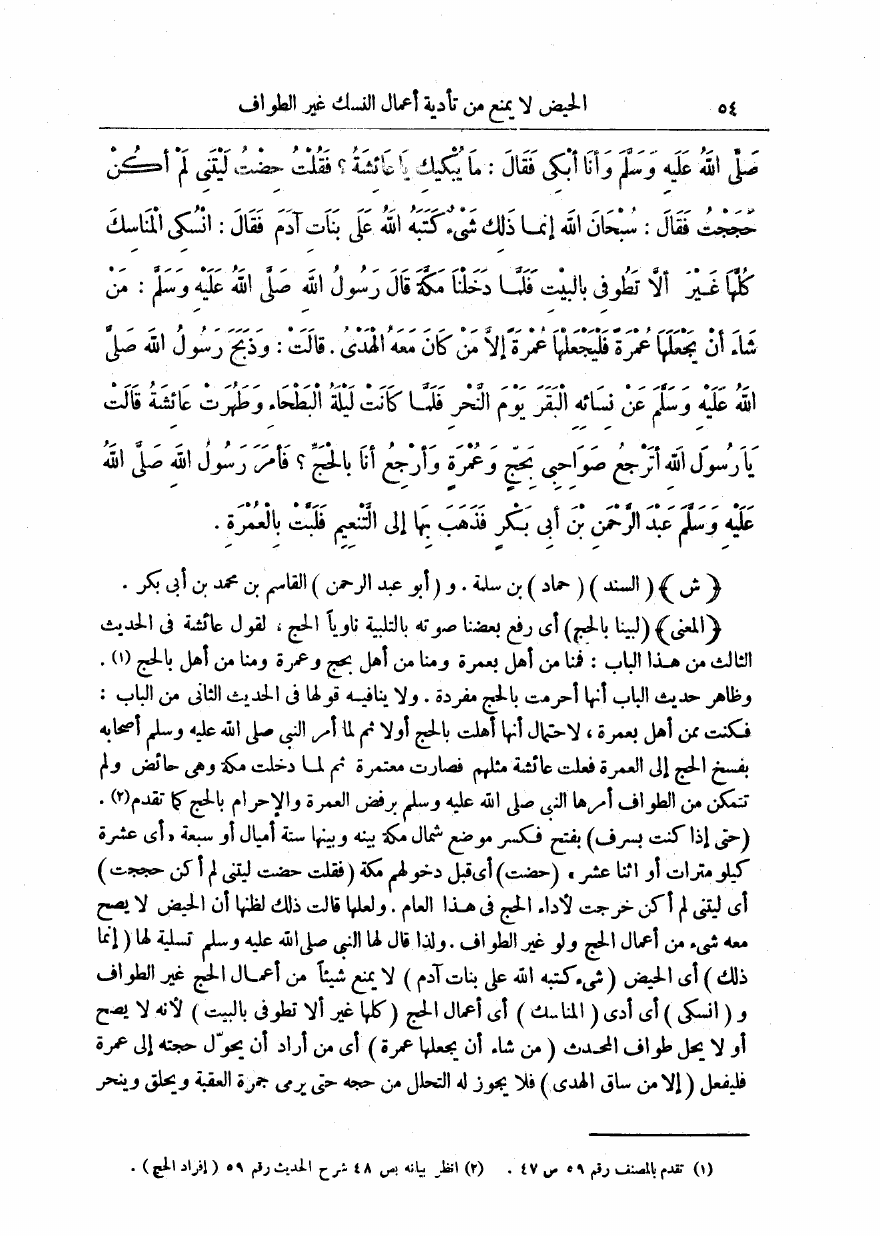 ٥٤ الحيض لا يمنع من تأدية أعمال النسك غير الطواف
صَلَّى اللهُ عَلَيْهِ وَسَلَّمَ وَأَنَا أَبْكِى فَقَالَ : مَا يُبْكِيكِ يَا عَائِشَةُ ؟ فَقُلْتُ حِضْتُ لَيْتَنِى لَمْ أَكُنْ
حَجَجْتُ فَقَالَ : سُبْحَانَ اللهِ إِنمَا ذَلِكَ شَىْءٌ كَتَبَهُ اللهُ عَلَى بَنَاتِ آدَمَ فَقَالَ : انْسُكِى الْمَنَاسِكَ
كُلَّهَا غَيْرَ أَلَّا تَطُوفِى بِالبَيْتِ فَلَمَّا دَخَلْنَا مَكَّةَ قَالَ رَسُولُ اللهِ صَلَّى اللهُ عَلَيْهِ وَسَلَّمَ : مَنْ
شَاءَ أَنْ يَجْعَلَهَا عُمْرَةً فَلْيَجْعَلْهَا عُمْرَةً إِلَّا مَنْ كَانَ مَعَهُ الْهَدْىُ . قَالَتْ : وَذَبَحَ رَسُولُ اللهِ صَلَّى
اللهُ عَلَيْهِ وَسَلَّمَ عَنْ نِسَائِهِ الْبَقَرَ يَوْمَ النَّحْرِ فَلَمَّا كَانَتْ لَيْلَةُ الْبَطْحَاءِ وَطَهُرَتْ عَائِشَةُ قَالَتْ
يَا رَسُولَ اللهِ أَتَرْجِعُ صَوَاحِبِى بِحَجٍّ وَعُمْرَةٍ وَأَرْجِعُ أَنَا بِالْحَجِّ ؟ فَأَمَرَ رَسُولُ اللهِ صَلَّى اللهُ
عَلَيْهِ وَسَلَّمَ عَبْدَ الرَّحْمَنِ بْنَ أَبِى بَكْرٍ فَذَهَبَ بِهَا إِلَى التَّنْعِيمِ فَلَبَّتْ بِالْعُمْرَةِ .
﴿ ش ﴾ ( السند ) ( حماد ) بن سلمة . و ( أبو عبد الرحمن ) القاسم بن محمد بن أبى بكر .
﴿المعنى﴾ (لبينا بالحج) أى رفع بعضنا صوته بالتلبية ناوياً الحج ، لقول عائشة فى الحديث
الثالث من هذا الباب : فمنا من أهل بعمرة ومنا من أهل بحج وعمرة ومنا من أهل بالحج (١) .
وظاهر حديث الباب أنها أحرمت بالحج مفردة . ولا ينافيه قولها فى الحديث الثانى من الباب :
فكنت ممن أهل بعمرة ، لاحتمال أنها أهلت بالحج أولا ثم لما أمر النبى صلى الله عليه وسلم أصحابه
بفسخ الحج إلى العمرة فعلت عائشة مثلهم فصارت معتمرة ثم لما دخلت مكة وهى حائض ولم
تتمكن من الطواف أمرها النبى صلى الله عليه وسلم برفض العمرة والإحرام بالحج كما تقدم(٢) .
(حتى إذا كنت بسرف) بفتح فكسر موضع شمال مكة بينه وبينها ستة أميال أو سبعة ، أى عشرة
كيلو مترات أو اثنا عشر ، (حضت) أى قبل دخولهم مكة (فقلت حضت ليتنى لم أكن حججت)
أى ليتنى لم أكن خرجت لأداء الحج فى هذا العام . ولعلها قالت ذلك لظنها أن الحيض لا يصح
معه شىء من أعمال الحج ولو غير الطواف . ولذا قال لها النبى صلى الله عليه وسلم تسلية لها (إنما
ذلك) أى الحيض (شىء كتبه الله على بنات آدم) لا يمنع شيئاً من أعمال الحج غير الطواف
و (انسكى) أى أدى (المناسك) أى أعمال الحج (كلها غير ألا تطوفى بالبيت) لأنه لا يصح
أو لا يحل طواف المحدث (من شاء أن يجعلها عمرة) أى من أراد أن يحوّل حجته إلى عمرة
فليفعل (إلا من ساق الهدى) فلا يجوز له التحلل من حجه حتى يرمى جمرة العقبة ويحلق وينحر
(١) تقدم بالمصنف رقم ٥٩ ص ٤٧ . (٢) انظر بيانه بص ٤٨ شرح الحديث رقم ٥٩ (إفراد الحج) .